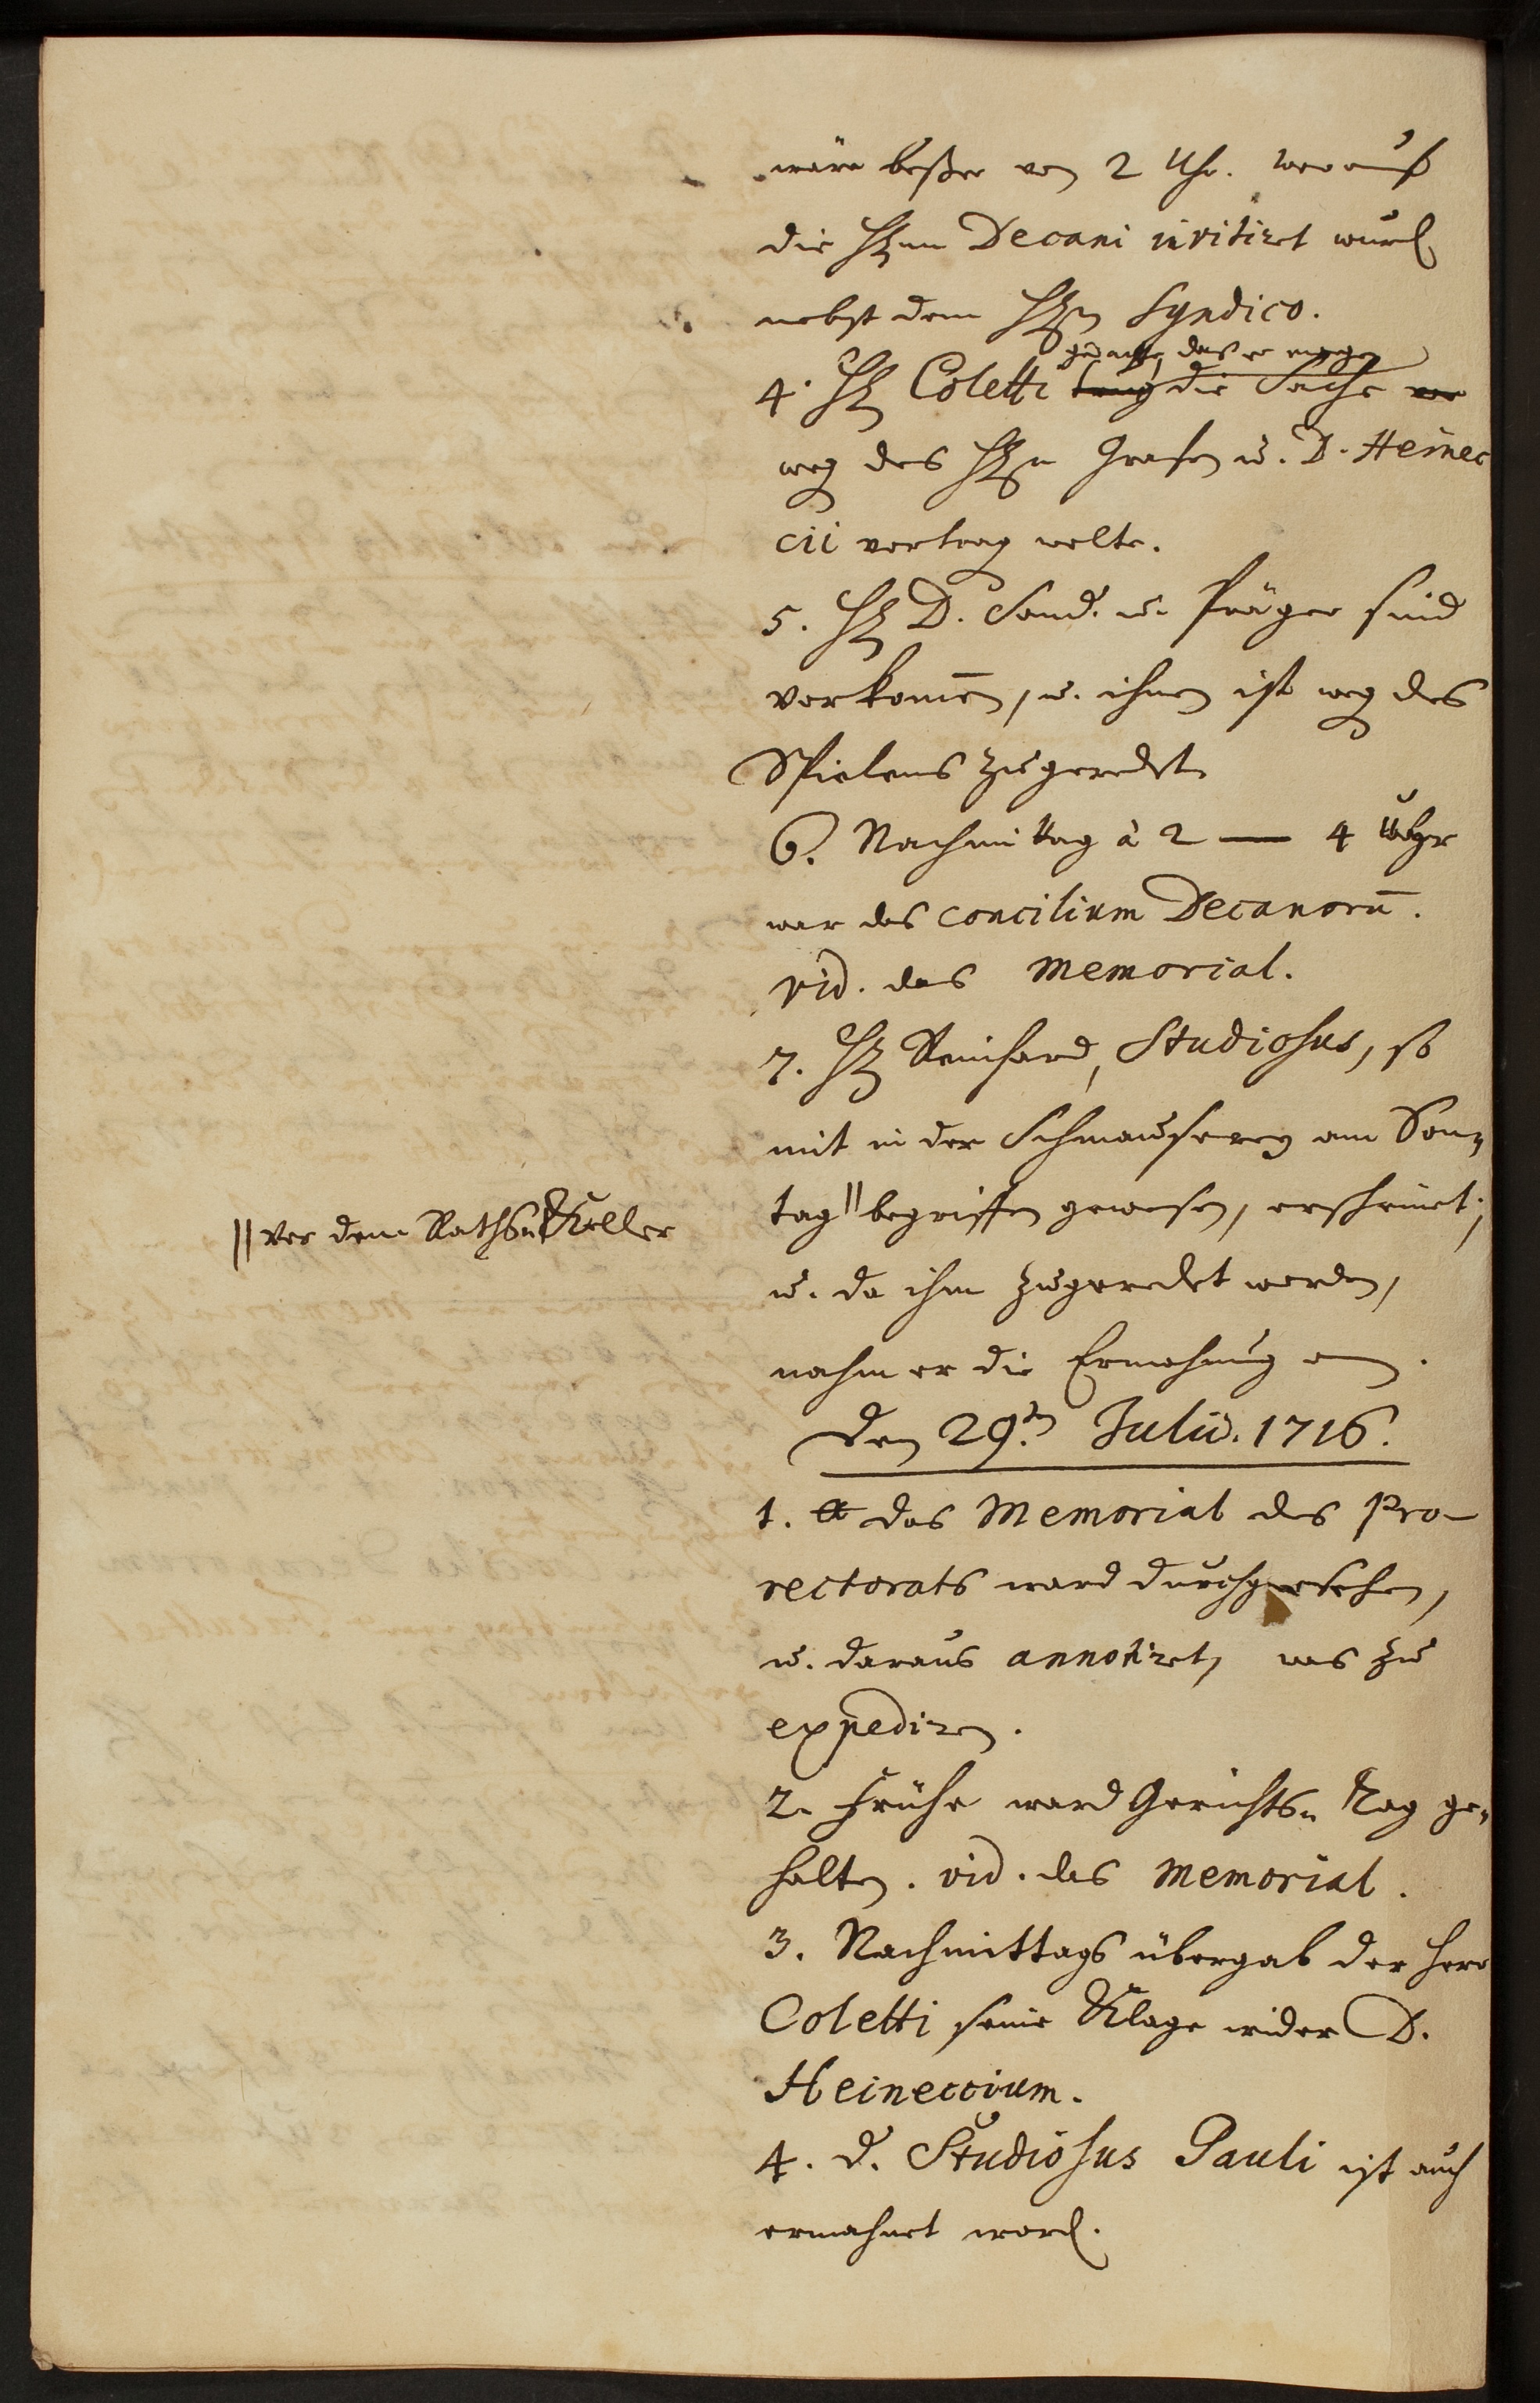 wäre beßer von 2 Uhr. worauf
die HErrn Decani invitiret wurd
nebst dem HErrn Syndico.
gedachte, daß er morgen
4. HE Coletti trug die Sache vor
weg des HErrn Grafen u. D. Heinec
cii vortrag wolte.
5. HE D. Sand. u. Präger sind
vorkom̄en, u. ihnen ist weg des
Spielens zugeredet
6. Nachmittag à 2 — 4 Uhr
war das concilium Decanorū.
vid. das Memorial.
7. HE Reinhard, Studiosus, so
mit in der Schmauserey am Son-
tag || begriffen gewesen, erscheinet;
|| vor dem Raths-Keller
u. da ihm zugeredet worden,
nahm er die Ermahnung an.
Den 29.ten Julii. 1716.
1. das Memorial des Pro-
rectorats ward durchgesehen,
u. daraus annotiret, was zu
expediren.
2. Frühe ward Gerichts-Tag ge-
halten. vid. das Memorial.
3. Nachmittags übergab der Herr
Coletti seine Klage wider D.
Heineccium.
4. d. Studiosus Pauli ist auch
ermahnet word.